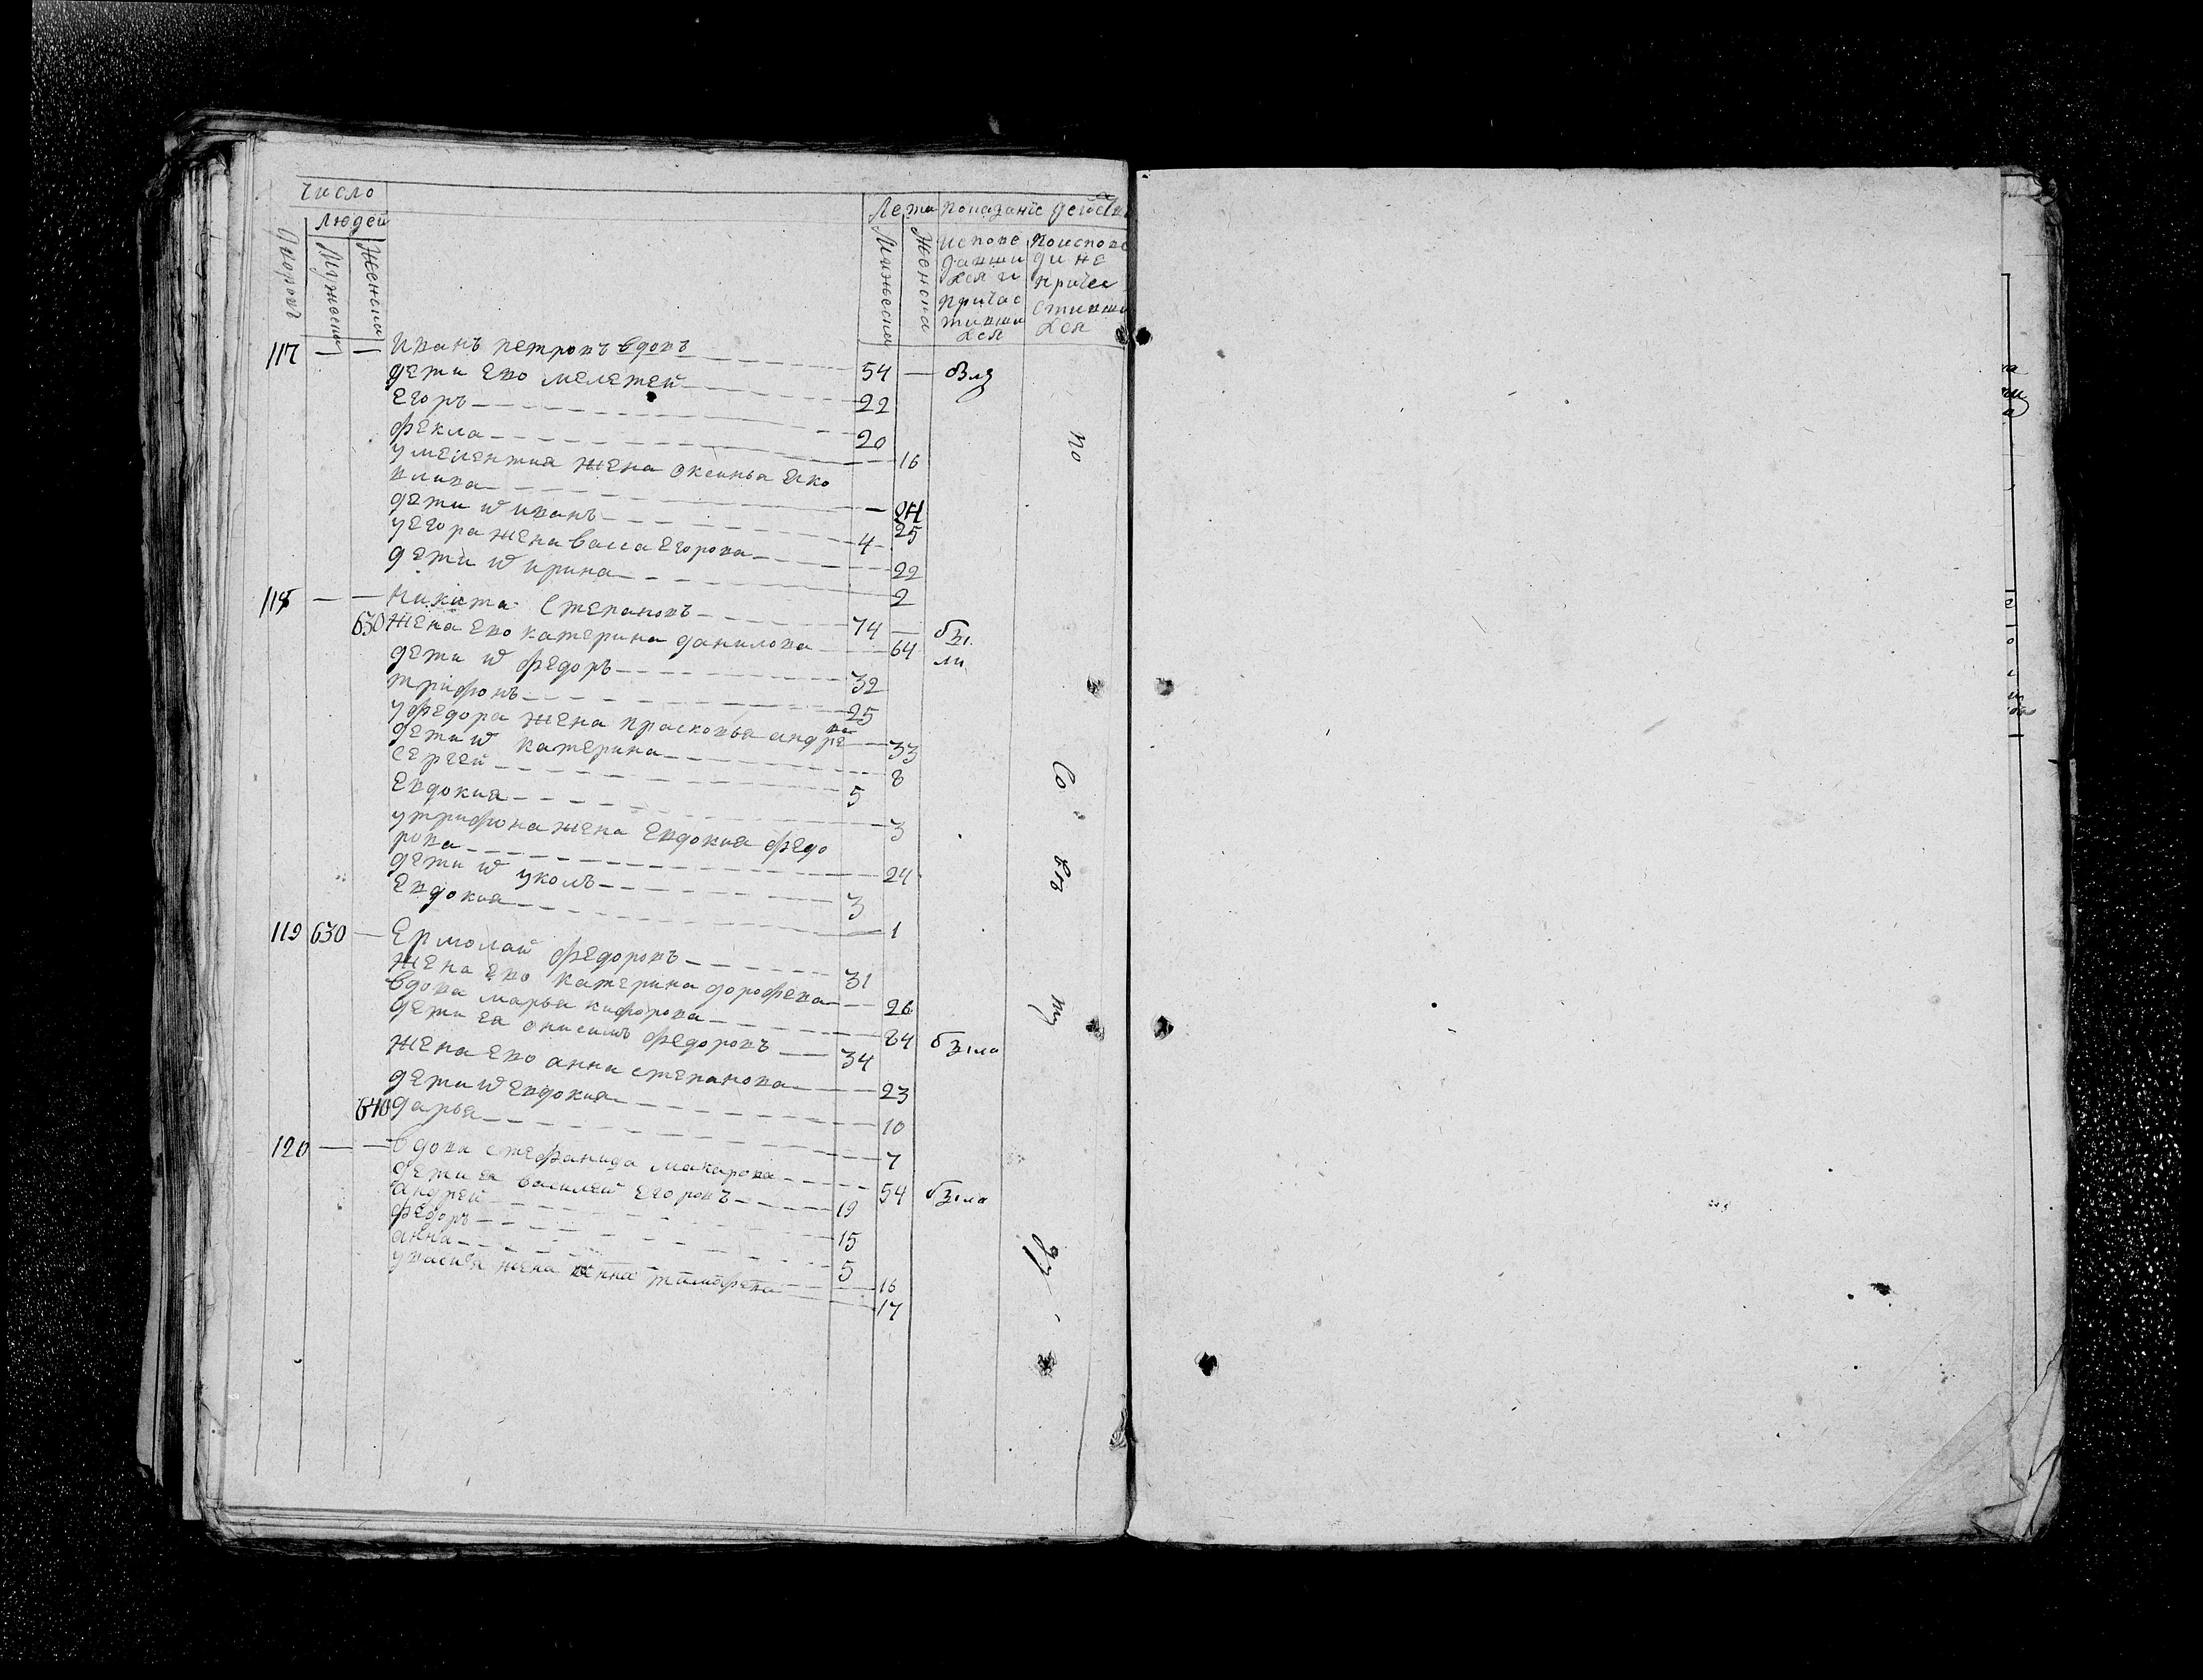 число
людей
Лета
Показание действ
дворовъ
Мужеска
Женска
Мужеска
Женска
испове
давши
хся и
причас
тивши
хся
По испове
ди не
причас
тивши
хся
117 — — Иванъ петровъ вдовъ 54 —
дети ево мелетей 22
Егоръ 20
фекла 16
у мелентия жена оксинья яко
влива 25
дети и иванъ 4
у егора жена васса Егорова 22
дети и ирина 2
118 — — Никита Степановъ 74 —
630 жена ево катерина данилова 64
дети и федоръ 32
трифонъ 25
у федора жена прасковья андре
ва 33
дети и катерина 8
сергей 5
Евдокия 3
у трифона жена Евдокия федо
рова 24
дети и уколъ 3
Евдокия 1
119 630 — Ермолай федоровъ 31
жена ево катерина дорофева 26
вдова марья кифорова 84
дети ея онисимъ федоровъ 34
жена ево анна степанова 23
дети и Евдокия 10
640 дарья 7
120 — — вдова стефанида макарова 54
дети ея василей Егоровъ 19
андрей 15
федоръ 5
анна 16
у васи я жена анна тимофева 17
по